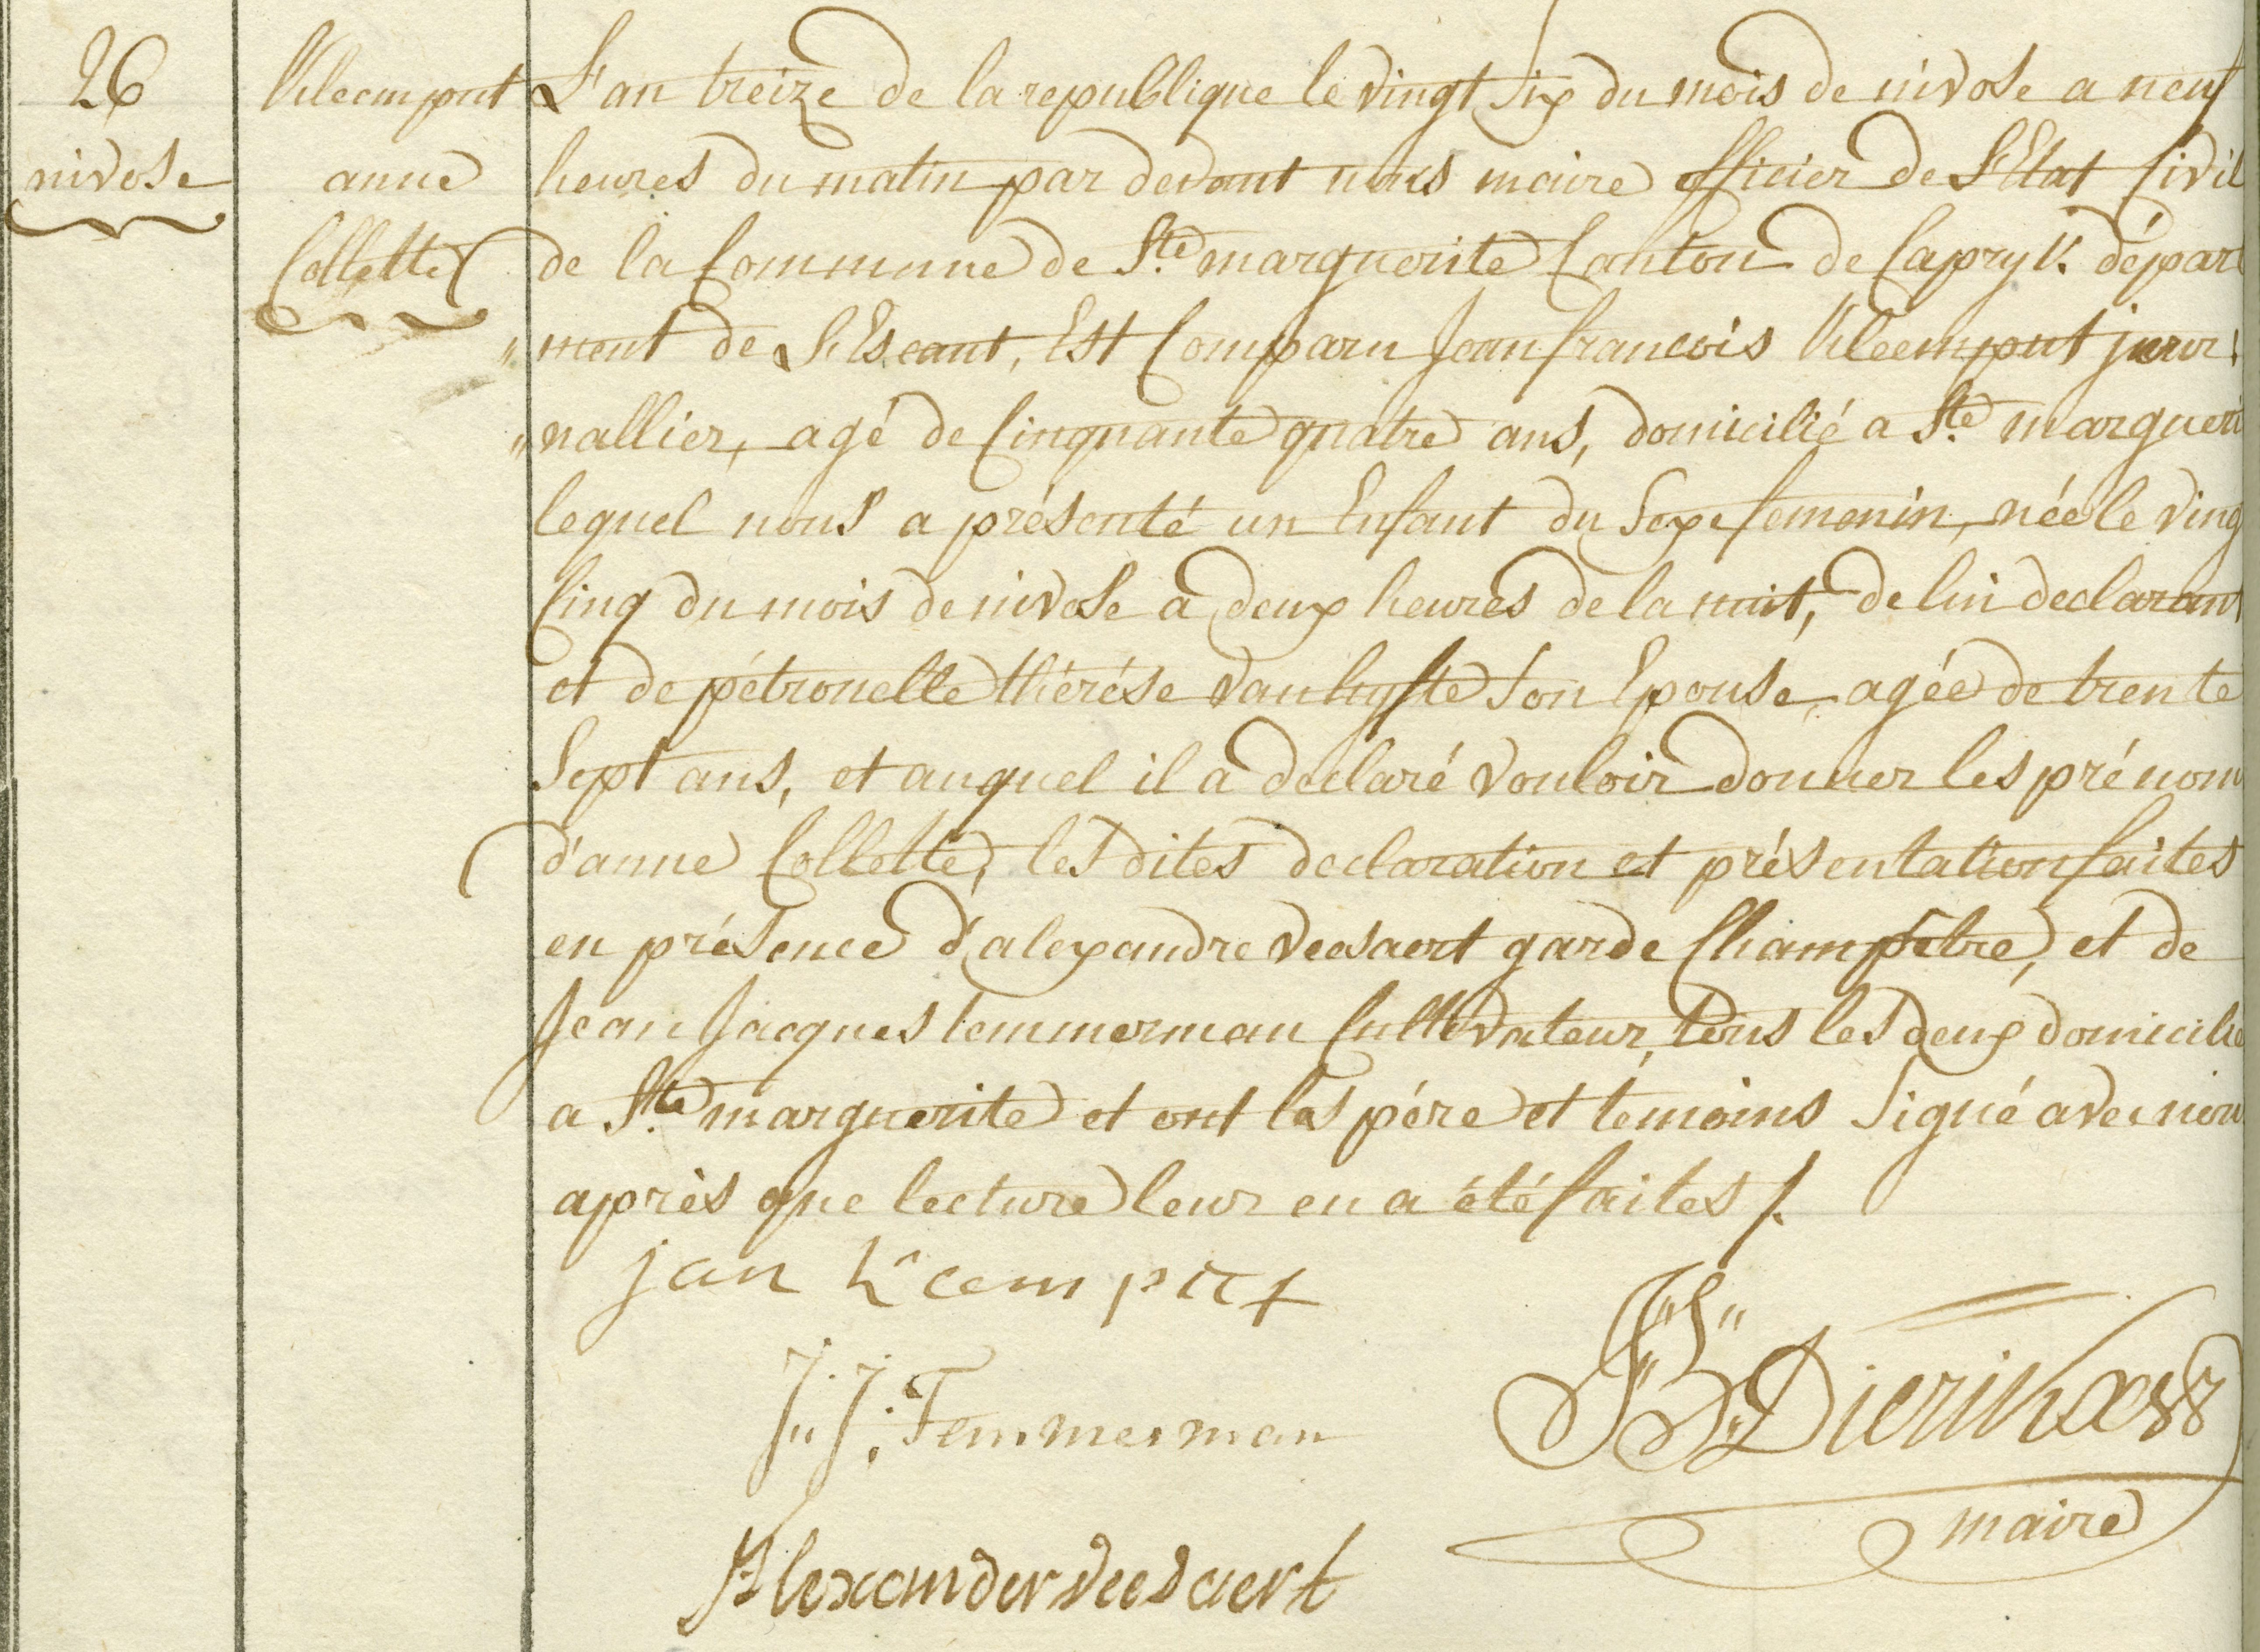 26
nivose
Kleemput
anne
Collette
L'an treize de la republique le vingt six du mois de nivose a neuf
heures du matin par devant nous maire officier de L'Etat Civil
de la Commune de Ste marguerite Canton de Capryk. départ
"ment de L'Escaut, Est Comparu Jean francois Kleemput jour
"nallier, agé de Cinquante quatre ans, domicilié a Ste margueri
lequel nous a présenté un Enfant du Sexe femenin, née le ving
Cinq du mois de nivose a deux heures de la nuit, de lui declarant
et de pétronelle thérése vanhyfte Son Epouse, agée de trente
Sept ans, et auquel il a declaré vouloir donner les prénom
d'anne Collette, les dites declaration et présentation faites
en présence d'alexandre veesaert garde Champêtre, et de
Jean Jacques temmerman Cultivateur, tous les deux domicilié
a Ste marguerite et ont les pére et temoins Signé avec nou
après que lecture leur en a été faites /.
jan kleemput
J: J: Temmerman
JB Dierikx
maire
Alexander veesaert